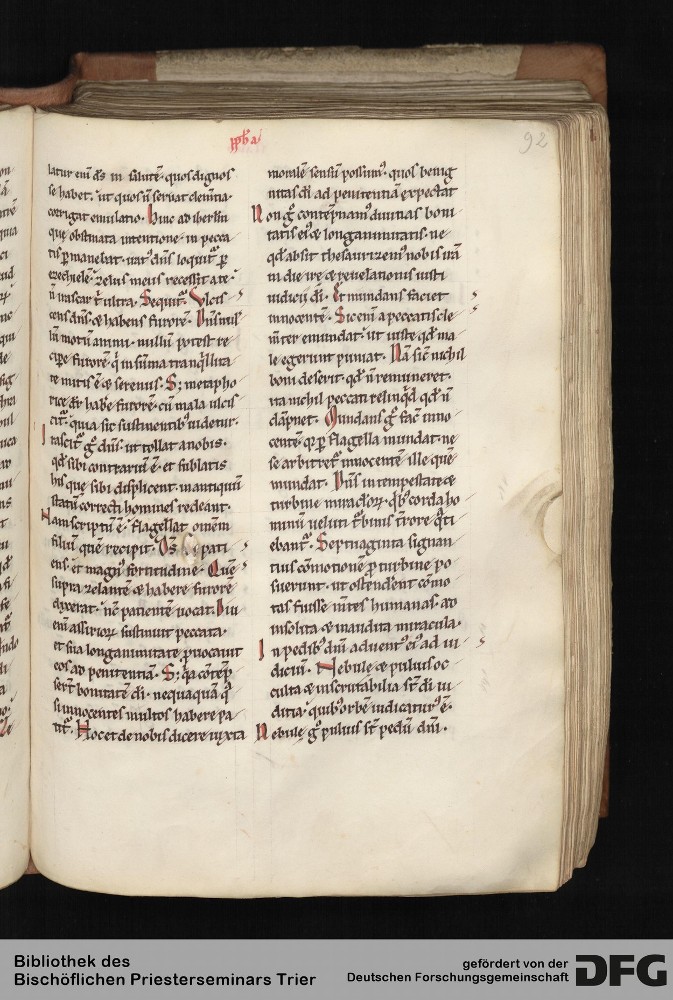 ppħa
92
latur eni d̄s in salutē· quos dignos
se habet. ut quos n̄ seruat clem̄tia·
corrigat emulatio. Hinc ad iherlm̄
que obstinata intentione· in pecca
tis p̄manebat· uat̄ dn̄s loquit᷒ p̄
ezechiele᷒· zelus meus recessit a te·
n̄ irascar t ultra. Sequit᷒. Vlcis
cens dn̄s· & habens furorē. Dn̄s
in motum animi· nullum potest re
cipe furorē· q̇ in summa tranq̇llita
te mitis ē & serenus. S; metapho
rice dr̄ habe᷒ furorē· cū mala ulcis
cit᷒· quia sic sustinentib᷒ uidetur.
Irascit᷒ g̊ dn̄s· ut tollat a nobis·
qd̄ sibi contrariū ē· et sublatis
his que sibi displicent· in antiquū
statū correcti homines redeant.
Nam scriptū ē· flagellat omnem
filiū quē recipit. Dn̄s pati
ens· et magn᷒ fortitudine. Quē
supra zelantē & habere furorē
dixerat· nc̄ patientē uocat. Diu
eni assirior̄ sustinuit peccata·
et sua longanimitate p̄uocauit
eos ad penitentiā. S; q̇a cōtēp
ser̄t bonitatē dī· nequaquā q̇
si innocentes multos habere pa
tit᷒. Hoc et de nobis dicere iuxta
moralē sensū possum᷒· quos benig
nitas dī ad penitentiā expectat
Non g̊ contēpnam᷒ diuitias boni
tatis ei᷒ & longanimitatis· ne
qd̄ absit thesaurizem᷒ nobis irā
in die ire & reuelationis iusti
iudicii dī. Et mundans faciet
innocentē. Sic eni a peccatis cle
mt̄er emundat· ut iuste qd̄ ma
le egerunt puniat. Nā sic nichil
boni deserit· qd̄ n̄ remuneret·
ita nichil peccati relinq̇d qd̄ n̄
dāpnet. Mundans g̊ fac̄ inno
centē· q̇ p̄ flagella mundat· ne
se arbitret᷒ innocentē ille quē
mundat. Dn̄s in tempestate &
turbine miraclor̄· q̇b᷒ corda ho
minū veluti t᷒bin᷒ t̄rore q̇ti
ebant᷒. Septuaginta signan
tius cōmotionē p̄ turbine po
suerunt· ut ostender̄ent cōmo
tas fuisse mt̄es humanas· ad
insolita & inaudita miracula.
In pedib᷒ dn̄i· aduent᷒ ei᷒ ad iu
diciū. Nebule & puluis oc
culta & inscrutabilia st̄ dī iu
ditia· quib᷒ orbē iudicatur᷒ ē·
Nebule g̊ puluis st̄ pedū dn̄i.
Bibliothek des
Bischöflichen Priesterseminars Trier
gefördert von der
Deutschen Forschungsgemeinschaft
DFG